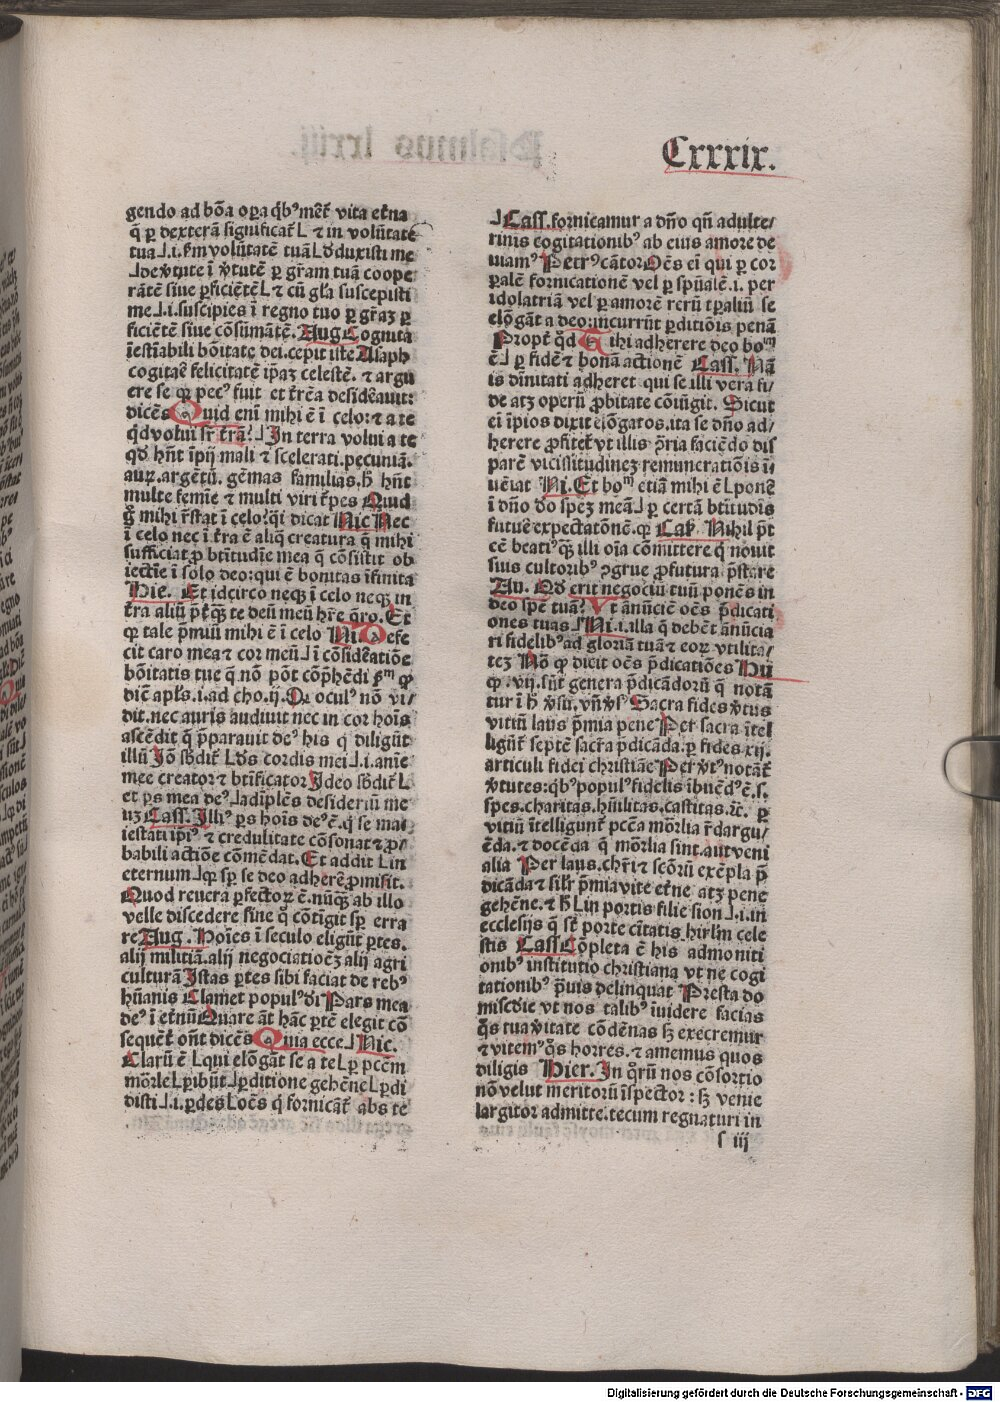 Cxxxix.
gendo ad bōa oꝑa qͥbꝰ mēt̄ vita et̄na
q̄ ꝑ dexterā significat̄ L ⁊ in volūtate
tua ⅃.i. ẜm volūtatē tuā L d̄duxisti me
⅃ de v̄tute ī v̄tutē ꝑ gr̄am tuā coope
rātē siue ꝑficiētē L ⁊ cū gl̄a suscepisti
me ⅃.i. suscipies ī regno tuo ꝑ gr̄aꝫ ꝑ
ficiētē siue cōsūmātē. Aug Cognita
īestīabili bōitate dei. cepit iste Asaph
cogitare felicitatē ip̄aꝫ celestē. ⁊ argu
ere se qꝫ pecꝰ fuit et t̄rēa desid̄auit:
dicēs Quid enī mihi ē ī celo: ⁊ a te
qͥd volui sr̄ t̄rā? ⅃ In terra volui a te
qd̄ hn̄t īpij mali ⁊ scelerati. pecuniā.
auꝝ. argētū. gēmas familias. h̄ hn̄t
multe femīe ⁊ multi viri t̄pes Quid
g̊ mihi r̄stat ī celo? q̄i dicat Nic Nec
ī celo nec ī t̄ra ē aliq̄ creatura q̄ mihi
sufficiat ꝓ btītudīe mea q̄ cōsistit ob
iectīe ī solo deo: qui ē bonitas īfinita
Hie. Et idcirco neqꝫ ī celo neqꝫ in
t̄ra aliū p̄t̄qꝫ te deū meū hr̄e q̄ro. Et
qꝫ tale p̄miū mihi ē ī celo Ni. Defe
cit caro mea ⁊ cor meū ⅃ ī cōsid̄atiōe
bōitatis tue q̄ nō pōt cōp̄hēdi ẜm qꝫ
diē apl̄s .i. ad cho. ij. Qꝫ oculꝰ nō vi/
dit. nec auris audiuit nec in cor hoīs
ascēdit q̄ p̄parauit deꝰ his q̄ diligūt
illū Jō sb̄dit̄ L Dꝰ cordis mei ⅃.i. anīe
mee creator ⁊ btīficator Jdeo sb̄dit̄ L
et ꝑs mea deꝰ ⅃ adīplēs desideriū me
uꝫ Cass. Jlliꝰ ꝑs hoīs deꝰ ē. q̄ se mai
iestati ip̄iꝰ ⁊ credulitate cōsonat ⁊ ꝓ/
babili actiōe cōmēdat. Et addit L in
eternum ⅃ qꝫ sꝑ se deo adherē ꝓmisit.
Quod reuera ꝑfectoꝝ ē. nūqꝫ ab illo
velle discedere sine q̄ cōtigit sꝑ erra
re Aug. Hoīes ī seculo eligūt ꝑtes.
alij militiā. alij negociatioēꝫ alij agri
culturā Jstas ꝑtes sibi faciat de rebꝰ
hūanis Clamet populꝰ di Pars mea
deꝰ ī et̄nū Quare āt hāc ꝑtē elegit cō
sequēt̄ on̄t dicēs Quia ecce ⅃ Nic.
Clarū ē L qui elōgāt se a te L ꝑ pccm̄
mōrle L ꝑibūt ⅃ ꝑditione gehēne L ꝑdi
disti ⅃.i. ꝑdes L oēs q̄ fornicāt̄ abs te
⅃ Cass. fornicamur a dn̄o qn̄ adulte/
rinis cogitationibꝰ ab eius amore de
uiamꝰ Petrꝰ cātor Oēs ei qui ꝑ cor
ꝑalē fornicationē vel ꝑ spūalē .i. per
idolatriā vel ꝑ amorē rerū tꝑaliū se
elōgāt a deo: incurrūt ꝑditiōis penā
Propt̄ qd̄ Mihi adherere deo boᵐ
ē ⅃ ꝑ fidē ⁊ bonā actionē Cass. Nā
is dīnitati adheret qui se illi vera fi/
de atꝫ operū ꝓbitate cōiūgit. Sicut
ei īpios dixit elōgatos. ita se dn̄o ad/
herere ꝓfitet̄ vt illis ꝯ̄ria faciēdo dis
parē vicissitudineꝫ remuneratiōis ī
ueiat Ni. Et boᵐ etiā mihi ē L ponē
ī dn̄o do speꝫ meā ⅃ ꝑ certā btītudīs
future expectatōnē. qꝫ Cas. Nihil p̄t
cē beatiꝰ qꝫ illi oīa cōmittere q̄ nouit
suis cultoribꝰ ꝯgrue ꝓfutura p̄stare
Au. Qd̄ erit negociū tuū ponēs in
deo spē tuā? Vt anūciē oēs p̄dicati
ones tuas ⅃ Ni .i. illa q̄ debēt ānūcia
ri fidelibꝰ ad gloriā tuā ⁊ eoꝝ vtilita/
teꝫ Nō qꝫ dicit oēs p̄dicatiōes Hu
qꝫ .vij. sūt genera p̄dicādorū q̄ notā
tur ī h̄ v̄su. vn̄ v̄sꝰ Sacra fides v̄tus
vitiū laus p̄mia pene Per sacra ītel
ligūt̄ septē sacr̄a p̄dicāda. ꝑ fides xij.
articuli fidei christiāe Per v̄tꝰ notāt̄
v̄tutes: qͥbꝰ populꝰ fidelis ībuēdꝰ ē. s.
spes. charitas. hūilitas. castitas. ⁊c. ꝑ
vitiū ītelligunt̄ pccā mōrlia r̄dargu/
ēda. ⁊ docēda q̄ mōrlia sint. aut veni
alia Per laus. chr̄i ⁊ scōrū exēpla p̄
dicāda ⁊ silr̄ p̄mia vite et̄ne atꝫ pene
gehēne. ⁊ h̄ L in portis filie sion ⅃.i. in
ecclesijs q̄ st̄ porte ciȳtatis hirlm̄ cele
stis Cass Cōpleta ē his admoniti
onibꝰ institutio christiana vt ne cogi
tationibꝰ p̄uis delinquat Presta do
mie vt nos talibꝰ īuidere facias
q̄s tua v̄itate cōdēnas sꝫ execremur
⁊ vitemꝰ q̄s horres. ⁊ amemus quos
diligis Hier. In q̄rū nos cōsortio
nō velut meritorū īspector: sꝫ venie
largitor admitte. tecum regnaturi in
s iij
Digitalisierung gefördert durch die Deutsche Forschungsgemeinschaft - DFG